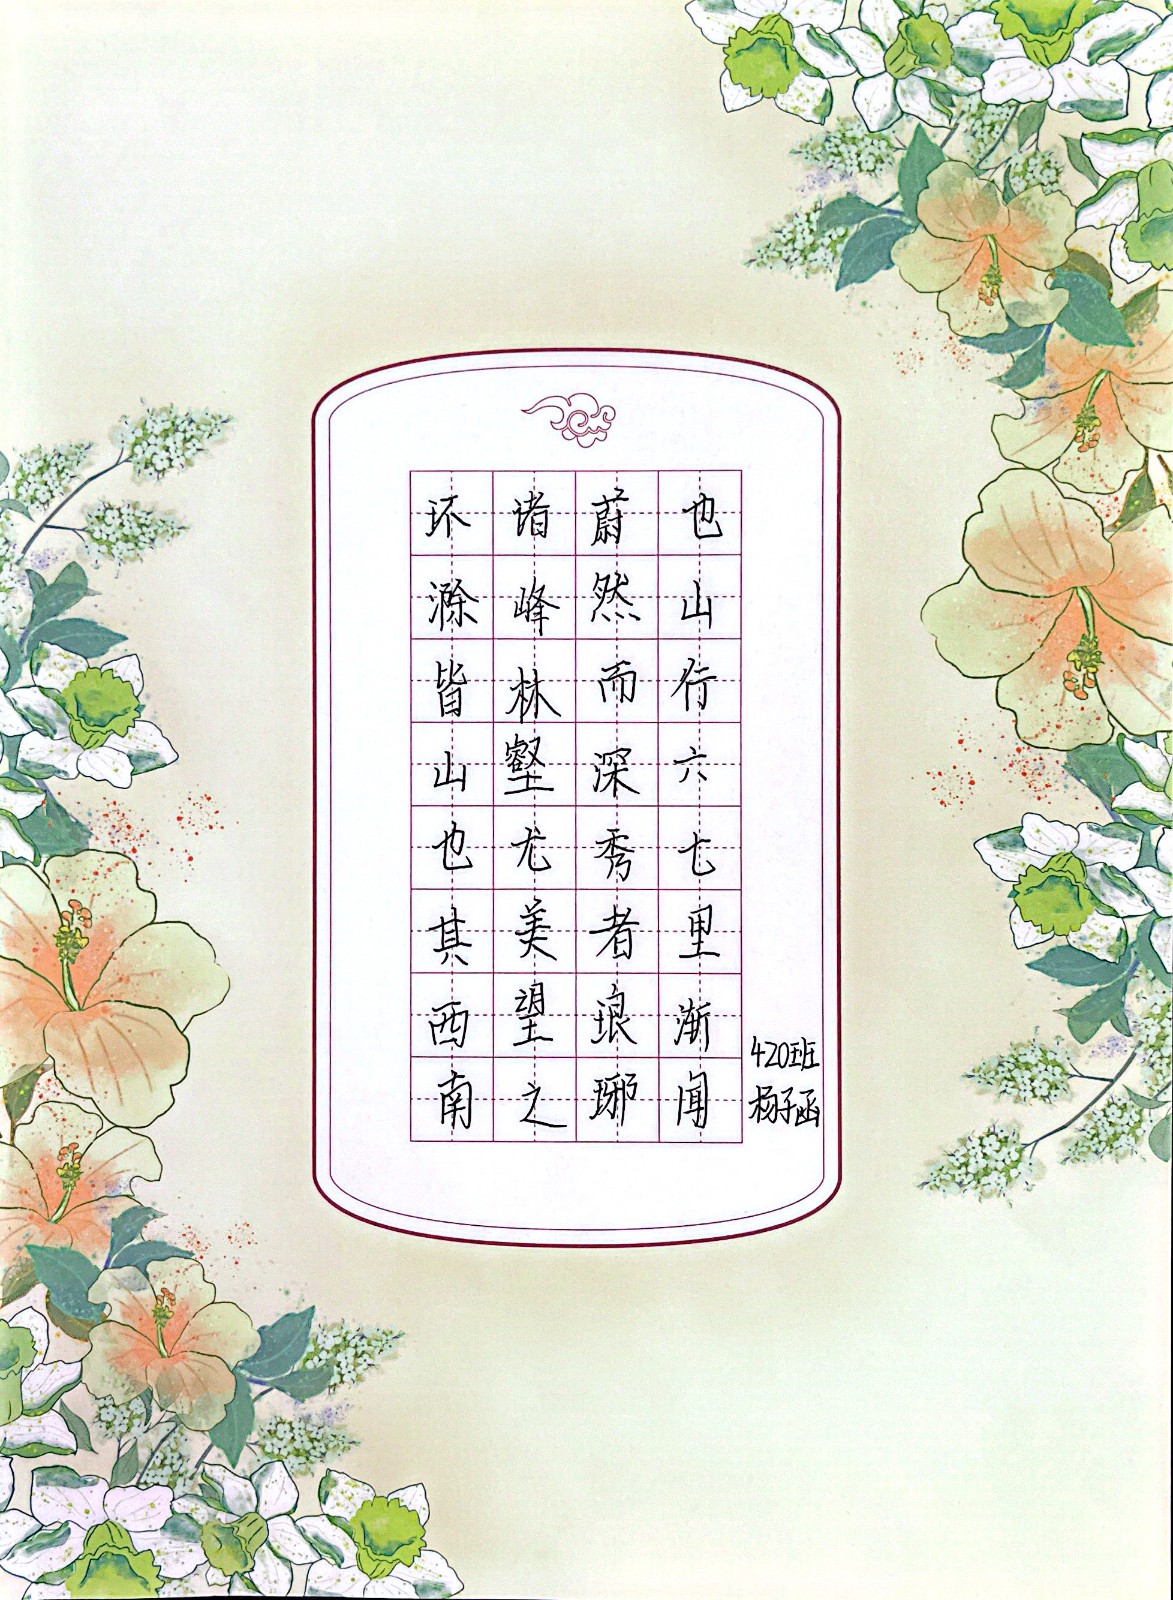 环滁皆山也其西南
诸峰林壑尤美望之
蔚然而深秀者琅琊
也山行六七里渐闻
420班
杨子函